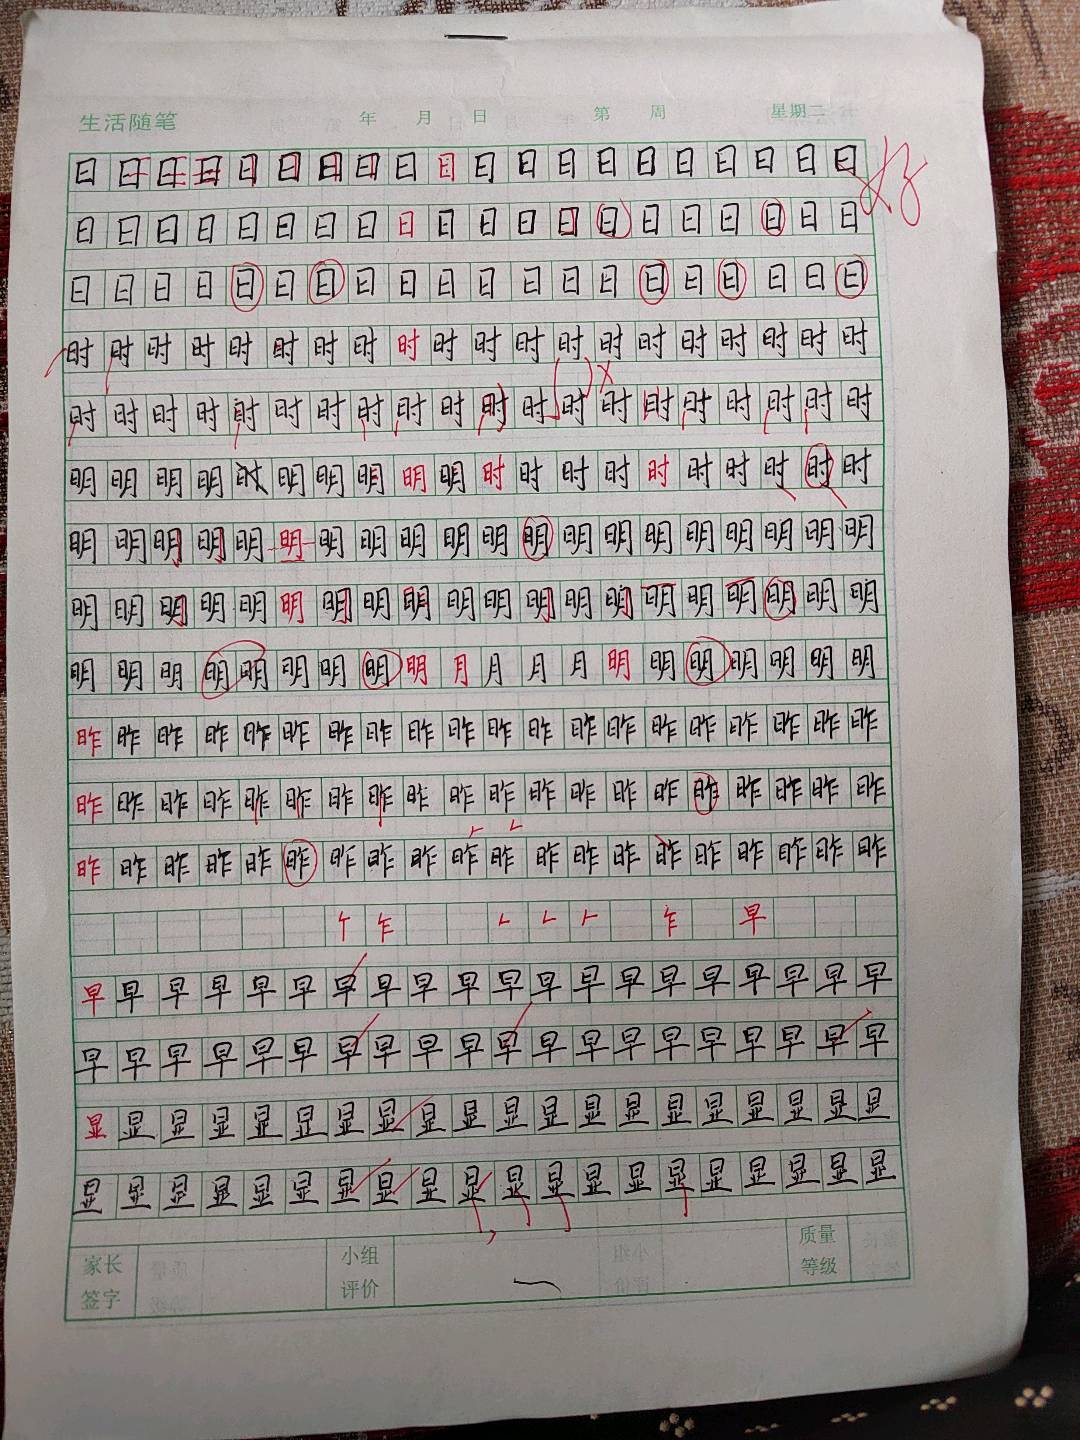 生活随笔 年 月 日 第 周 星期二
日日日日日日日日日日日日日日日日日日日日 好
日日日日日日日日日日日日日日日日日日日日
日日日日日日日日日日日日日日日日日日日日
时时时时时时时时时时时时时时时时时时时时
时时时时时时时时时时时时时时时时时时时时
明明明明时明明明明明时时时时时时时时时时
明明明明明明明明明明明明明明明明明明明明
明明明明明明明明明明明明明明明明明明明明
明明明明明明明明明月月月月明明明明明明明
昨昨昨昨昨昨昨昨昨昨昨昨昨昨昨昨昨昨昨昨
昨昨昨昨昨昨昨昨昨昨昨昨昨昨昨昨昨昨昨昨
昨昨昨昨昨昨昨昨昨昨昨昨昨昨昨昨昨昨昨昨
乍 乍 早
早早早早早早早早早早早早早早早早早早早早
早早早早早早早早早早早早早早早早早早早早
显显显显显显显显显显显显显显显显显显显显
显显显显显显显显显显显显显显显显显显显显
家长签字 小组评价 质量等级